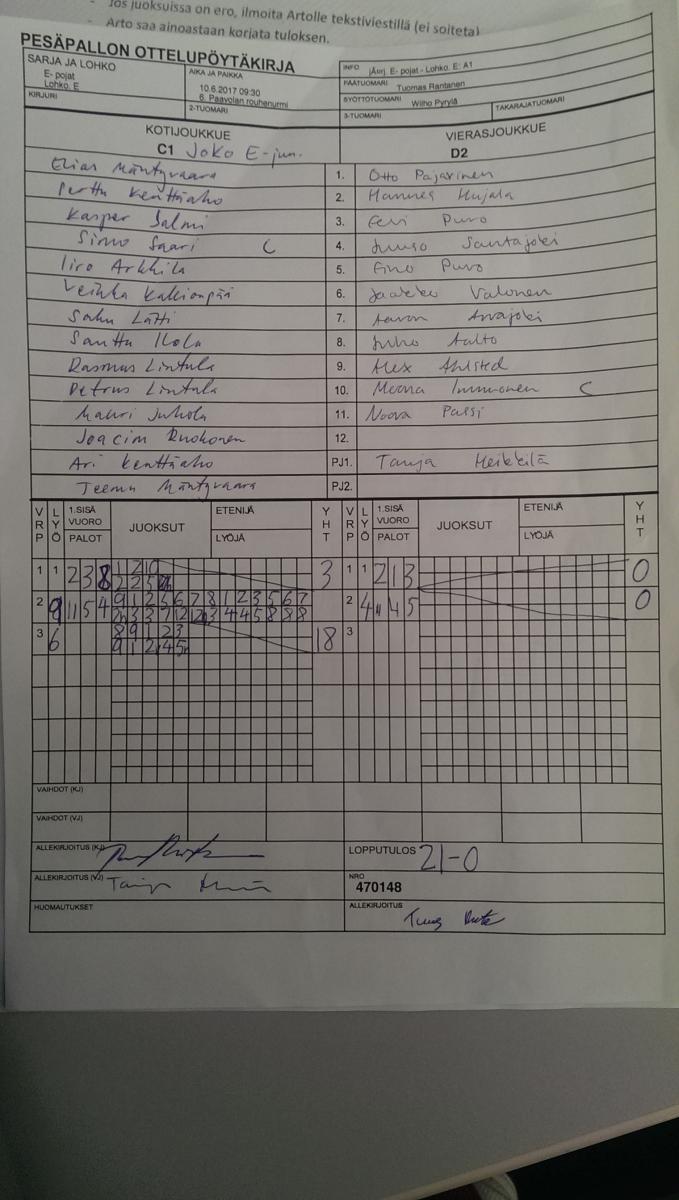 - Jos juoksuissa on ero, ilmoita Artolle tekstiviestillä (ei soiteta)
- Arto saa ainoastaan korjata tuloksen.
PESÄPALLON OTTELUPÖYTÄKIRJA
SARJA JA LOHKO
E- pojat
Lohko. E
AIKA JA PAIKKA
10.6.2017 09:30
6. Paavolan rouhenurmi
INFO E- pojat - Lohko. E: A1
PÄÄTUOMARI Tuomas Rantanen
SYÖTTÖTUOMARI Wilho Pyrylä
KIRJURI
2-TUOMARI
3-TUOMARI
TAKARAJATUOMARI
KOTIJOUKKUE
C1 JoKo E-jun.
VIERASJOUKKUE
D2
Elias Mäntyvaara 1. Otto Pajarinen
Perttu Kenttäaho 2. Hannes Hujala
Kasper Salmi 3. Eevi Puro
Simo Saari C 4. Juuso Santajoki
Iiro Arkkila 5. Eino Puro
Veikka Kallionpää 6. Jaakko Valonen
Saku Lätti 7. Aaron Arvajoki
Santtu Ilola 8. Juho Aalto
Rasmus Lintula 9. Alex Ahlsted
Petrus Lintula 10. Moona Immonen C
Mauri Juhola 11. Noora Passi
Joacim Ruohonen 12.
Ari Kenttäaho PJ1. Tanja Heikkilä
Teemu Mäntyvaara PJ2.
VRP LYÖ 1.SISÄ VUORO PALOT JUOKSUT ETENIJÄ LYÖJÄ YHT VRP LYÖ 1.SISÄ VUORO PALOT JUOKSUT ETENIJÄ LYÖJÄ YHT
1 1 2 3 8 1 2 10 3 1 1 2 1 3 0
2 9 11 5 4 9 1 2 5 6 7 8 1 2 3 5 6 7 2 4 11 4 5 0
3 6 8 9 1 2 3 18 3
VAIHDOT (KJ)
VAIHDOT (VJ)
ALLEKIRJOITUS (KJ)
LOPPUTULOS 21-0
ALLEKIRJOITUS (VJ)
NRO
470148
HUOMAUTUKSET
ALLEKIRJOITUS